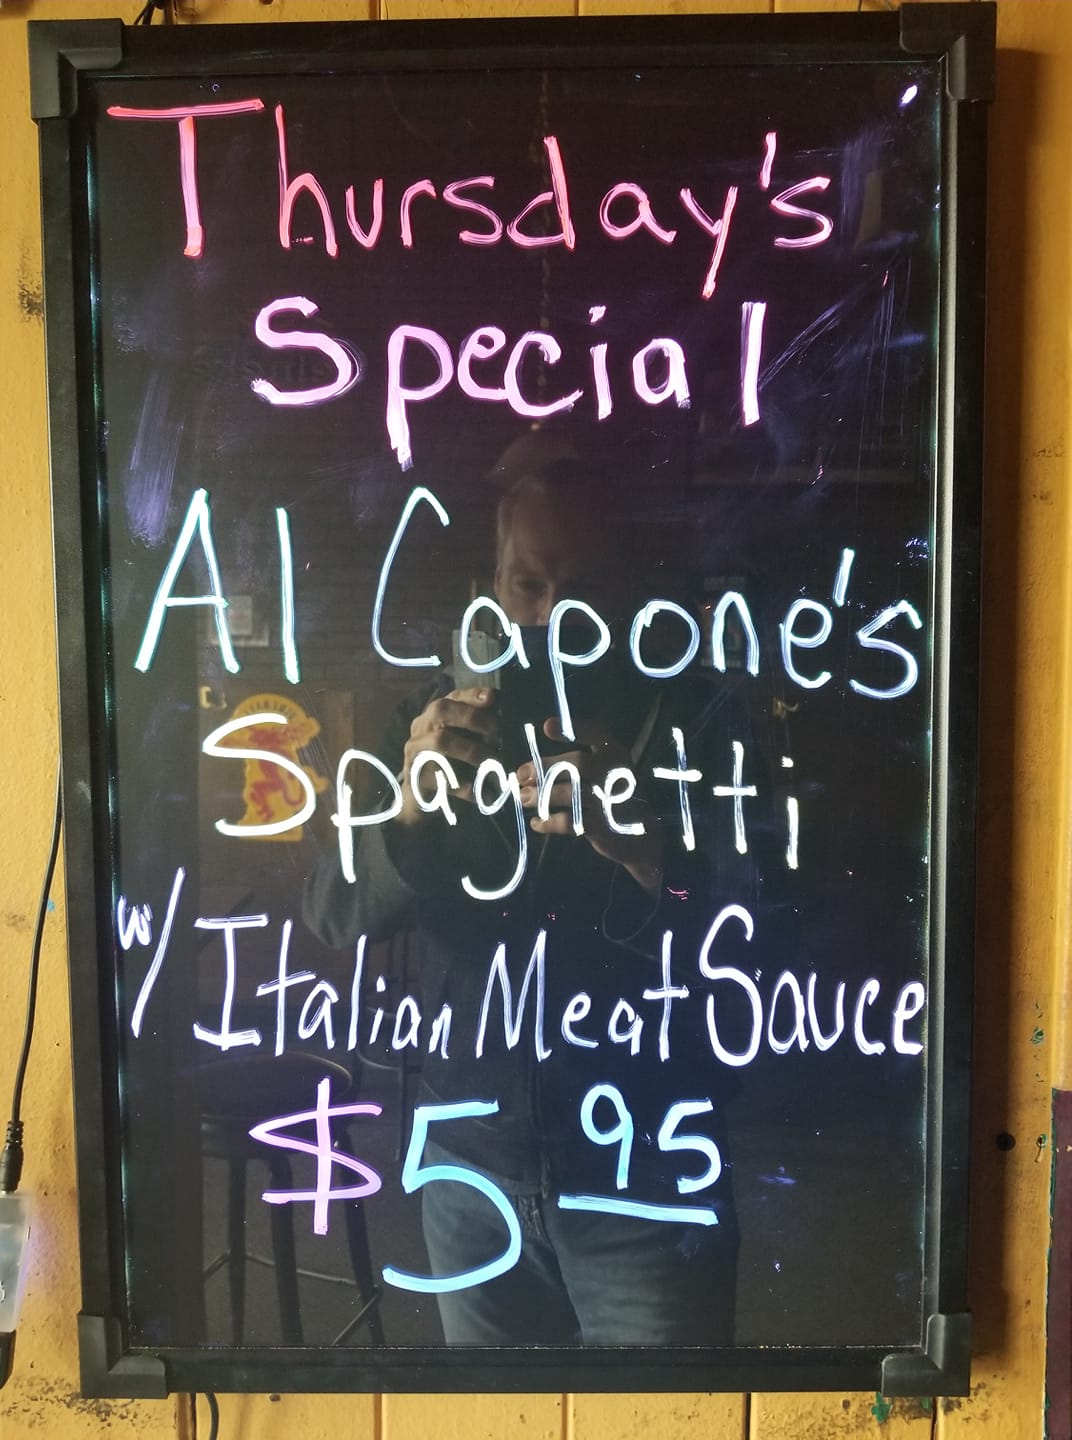 Thursday's
Special
Al Capone's
Spaghetti
w/ Italian Meat Sauce
$5 95